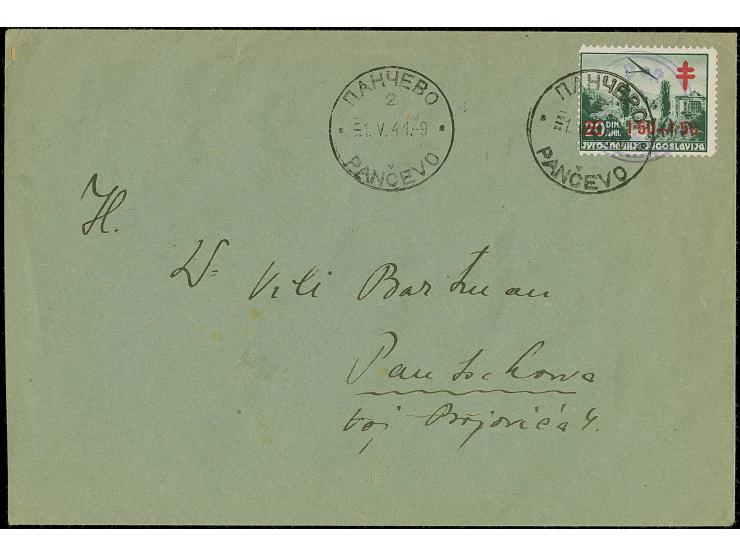 ПАНЧЕВО
2
1.V.41.-9
PANČEVO
ПАНЧЕВО
PANČEVO
20 DIN. ДИН. 1·50
ЈУГОСЛАВИЈА JUGOSLAVIJA
H.
Dr Vili Bartman
Pantschowa
4.